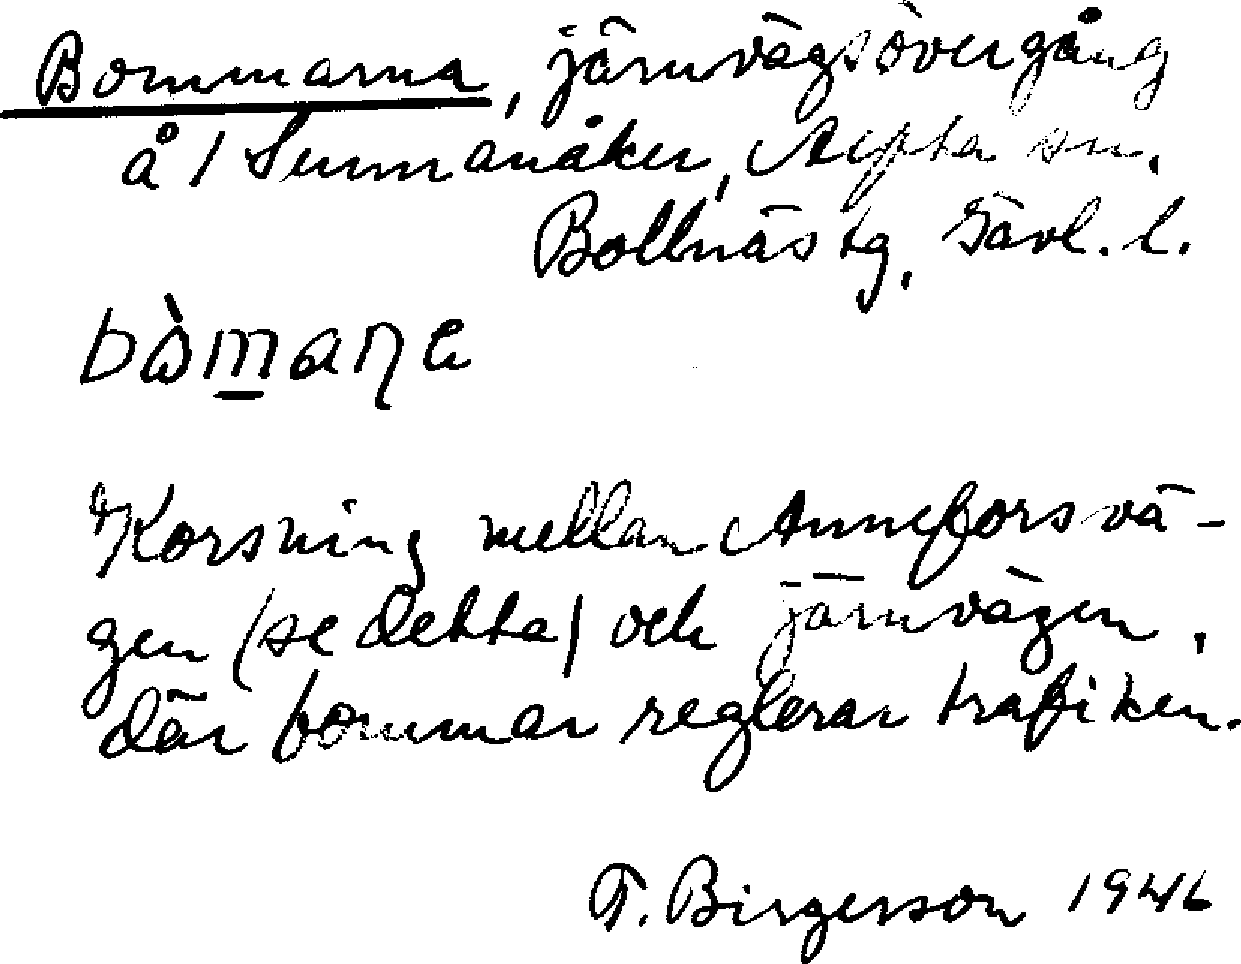 Bommarna, järnvägsövergång
å 1 Sunnanåker, Alfta sn.
Bollnäs tg, Gävl. l.
bòmaṇa
Korsning mellan Anneforsvä-
gen (se detta) och järnvägen,
där bommar reglerar trafiken.
T. Birgerson 1946